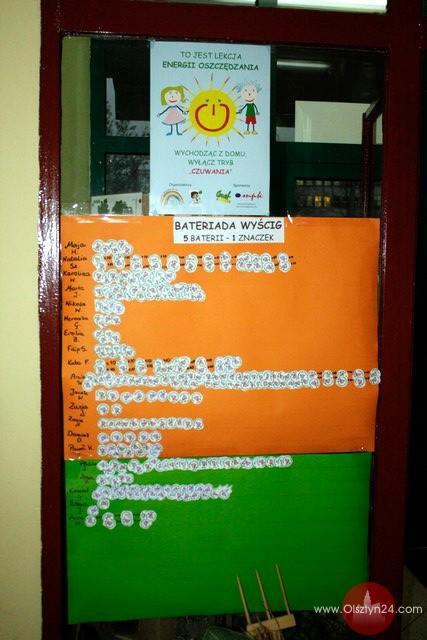 TO JEST LEKCJA
ENERGII OSZCZĘDZANIA
WYCHODZĄC Z DOMU,
WYŁĄCZ TRYB
„CZUWANIA”
Organizatorzy
Sponsorzy
BATERIADA WYŚCIG
5 BATERII - 1 ZNACZEK
Maja
Natalia
Karolina
Marta
Nikola
Weronika
Emilia
B.
Filip S.
Kuba F.
Ania
Jacek
Zuzia
Zosia
Dominik
Paweł K.
www.Olsztyn24.com